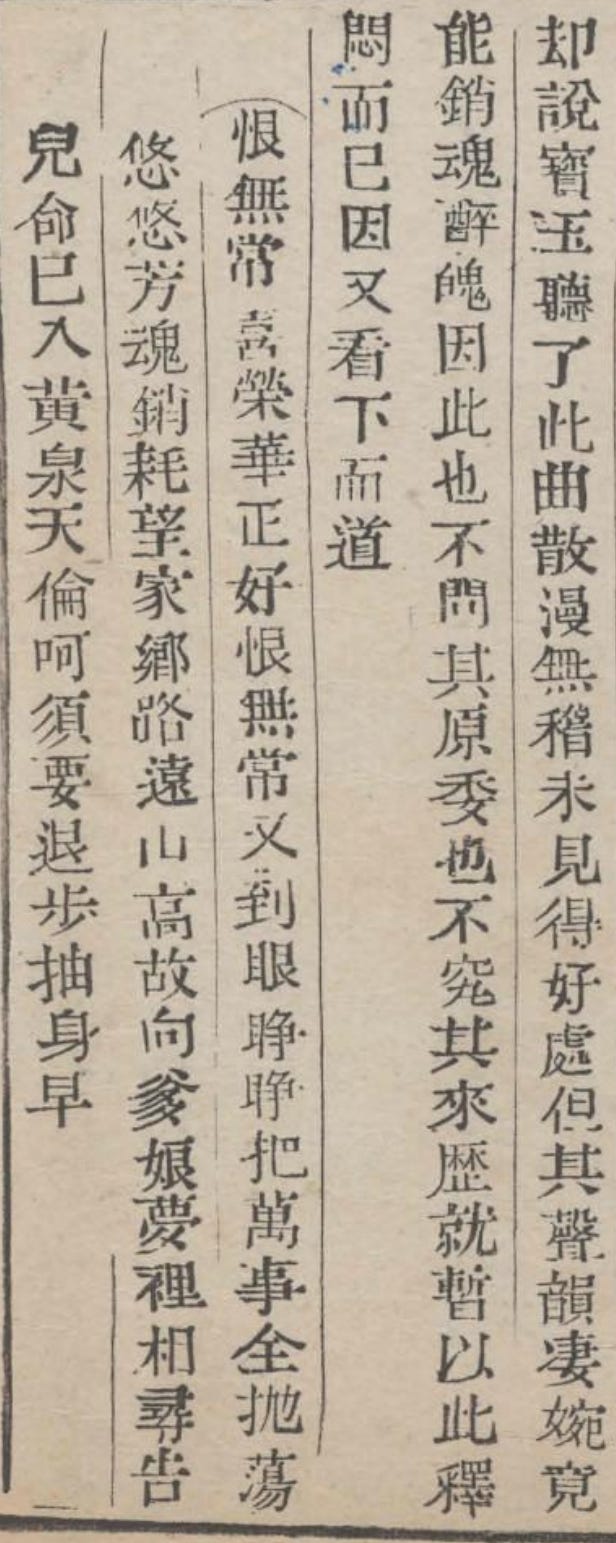 却說寳玉聽了此曲散漫無稽未見得好處但其聲韻凄婉竟
能銷魂醉魄因此也不問其原委也不究其來歷就暫以此釋
悶而已因又看下面道
恨無常喜榮華正好恨無常又到眼睁睁把萬事全抛蕩
悠悠芳魂銷耗望家鄉路遠山高故向爹娘夢裡相尋告
兒命已入黃泉天倫呵須要退步抽身早